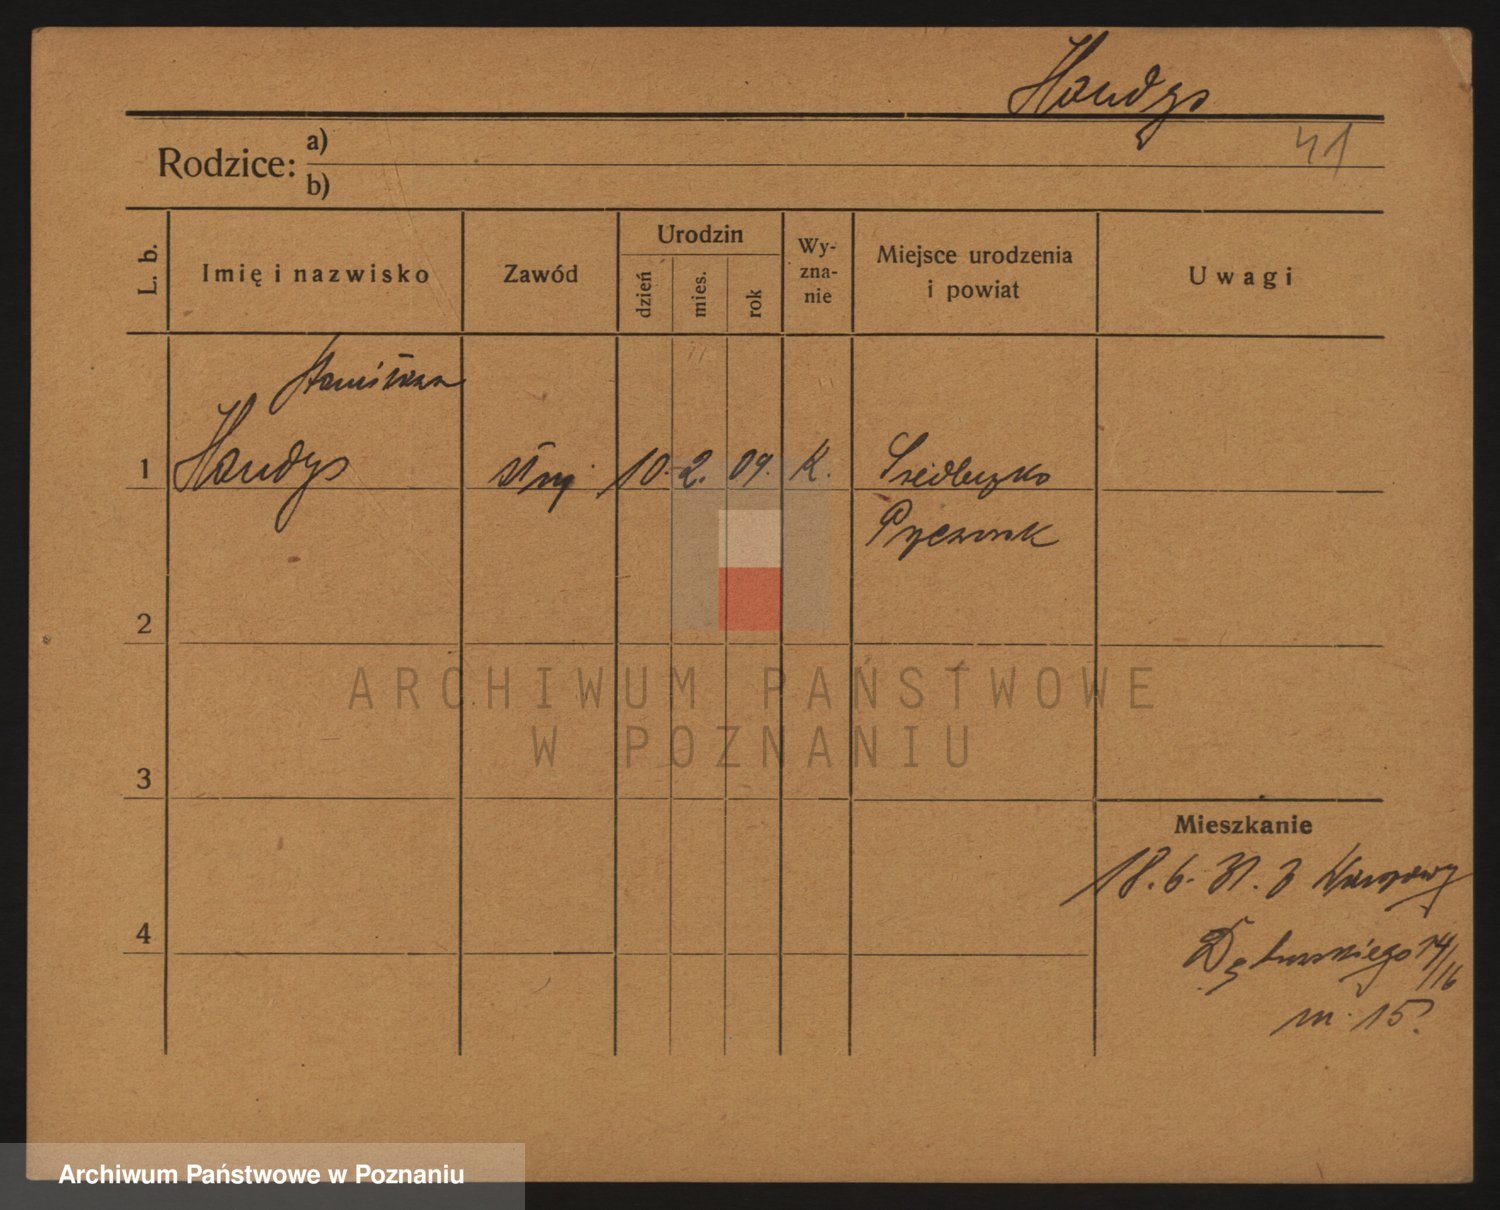 Handys
41
Rodzice: a)
b)
L. b.
Imię i nazwisko
Zawód
Urodzin
dzień
mies.
rok
Wy-
zna-
nie
Miejsce urodzenia
i powiat
Uwagi
Stanisława
1 Handys służ. 10. 2. 09. K. Siedleczko
2
3
4
Mieszkanie
18. 6. 31. z
Dąbrowskiego 14/16
m. 15.
ARCHIWUM PAŃSTWOWE
W POZNANIU
Archiwum Państwowe w Poznaniu